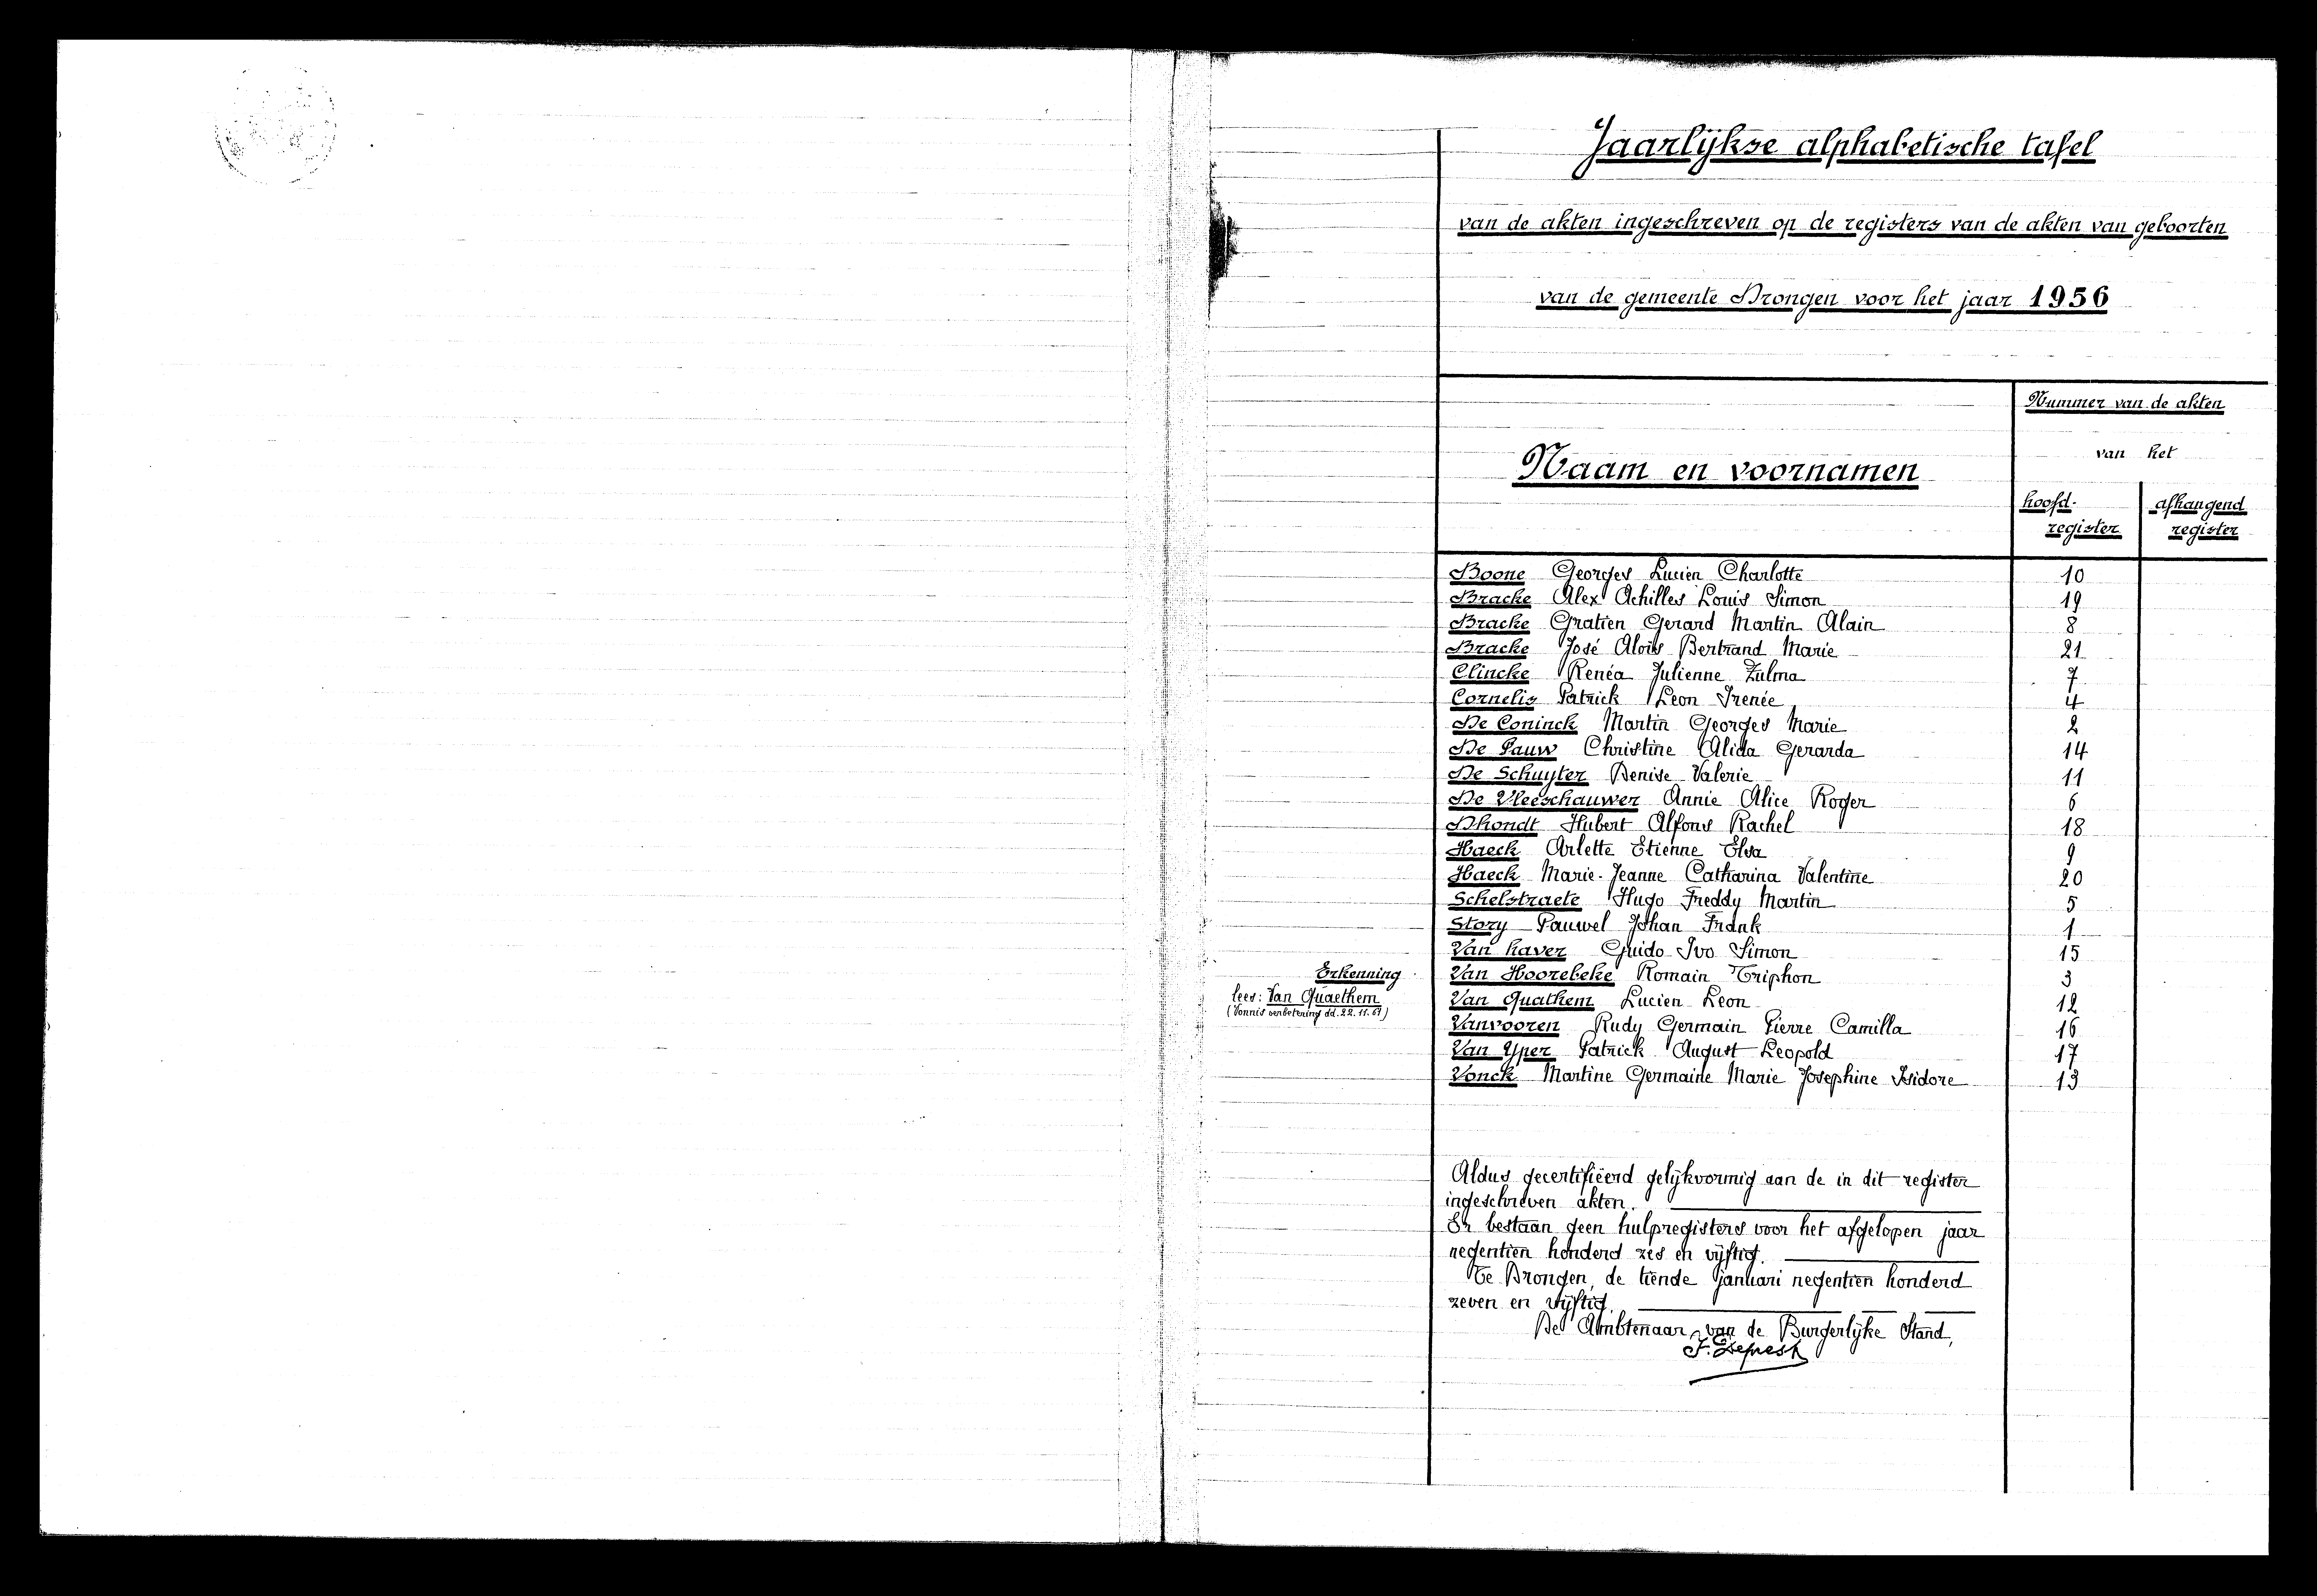 Jaarlijkse alphabetische tafel
van de akten ingeschreven op de registers van de akten van geboorten
van de gemeente Drongen voor het jaar 1956
Nummer van de akten
van het
Naam en voornamen
hoofd-
register
afhangend
register
Boone Georges Lucien Charlotte 10
Bracke Alex Achilles Louis Simon 19
Bracke Gratien Gerard Martin Alain 8
Bracke José Aloïs Bertrand Marie 21
Clincke Renéa Julienne Zulma 7
Cornelis Patrick Leon Irenée 4
De Coninck Martin Georges Marie 2
De Pauw Christine Alida Gerarda 14
De Schuyter Denise Valerie 11
De Vleeschauwer Annie Alice Roger 6
Dhondt Hubert Alfons Rachel 18
Haeck Arlette Etienne Elsa 9
Haeck Marie-Jeanne Catharina Valentine 20
Schelstraete Hugo Freddy Martin 5
Story Pauwel Johan Frank 1
Van haver Guido Ivo Simon 15
Erkenning Van Hoorebeke Romain Triphon 3
lees: Van Quaethem Van Quathem Lucien Leon 12
(Vonnis verbetering dd. 22.11.61)
Vanvooren Rudy Germain Pierre Camilla 16
Van Yper Patrick August Leopold 17
Vonck Martine Germaine Marie Josephine Isidore 13
Aldus gecertifiëerd gelijkvormig aan de in dit register
ingeschreven akten.
Er bestaan geen hulpregisters voor het afgelopen jaar
negentien honderd zes en vijftig.
Te Drongen, de tiende januari negentien honderd
zeven en vijftig.
De Ambtenaar van de Burgerlijke Stand,